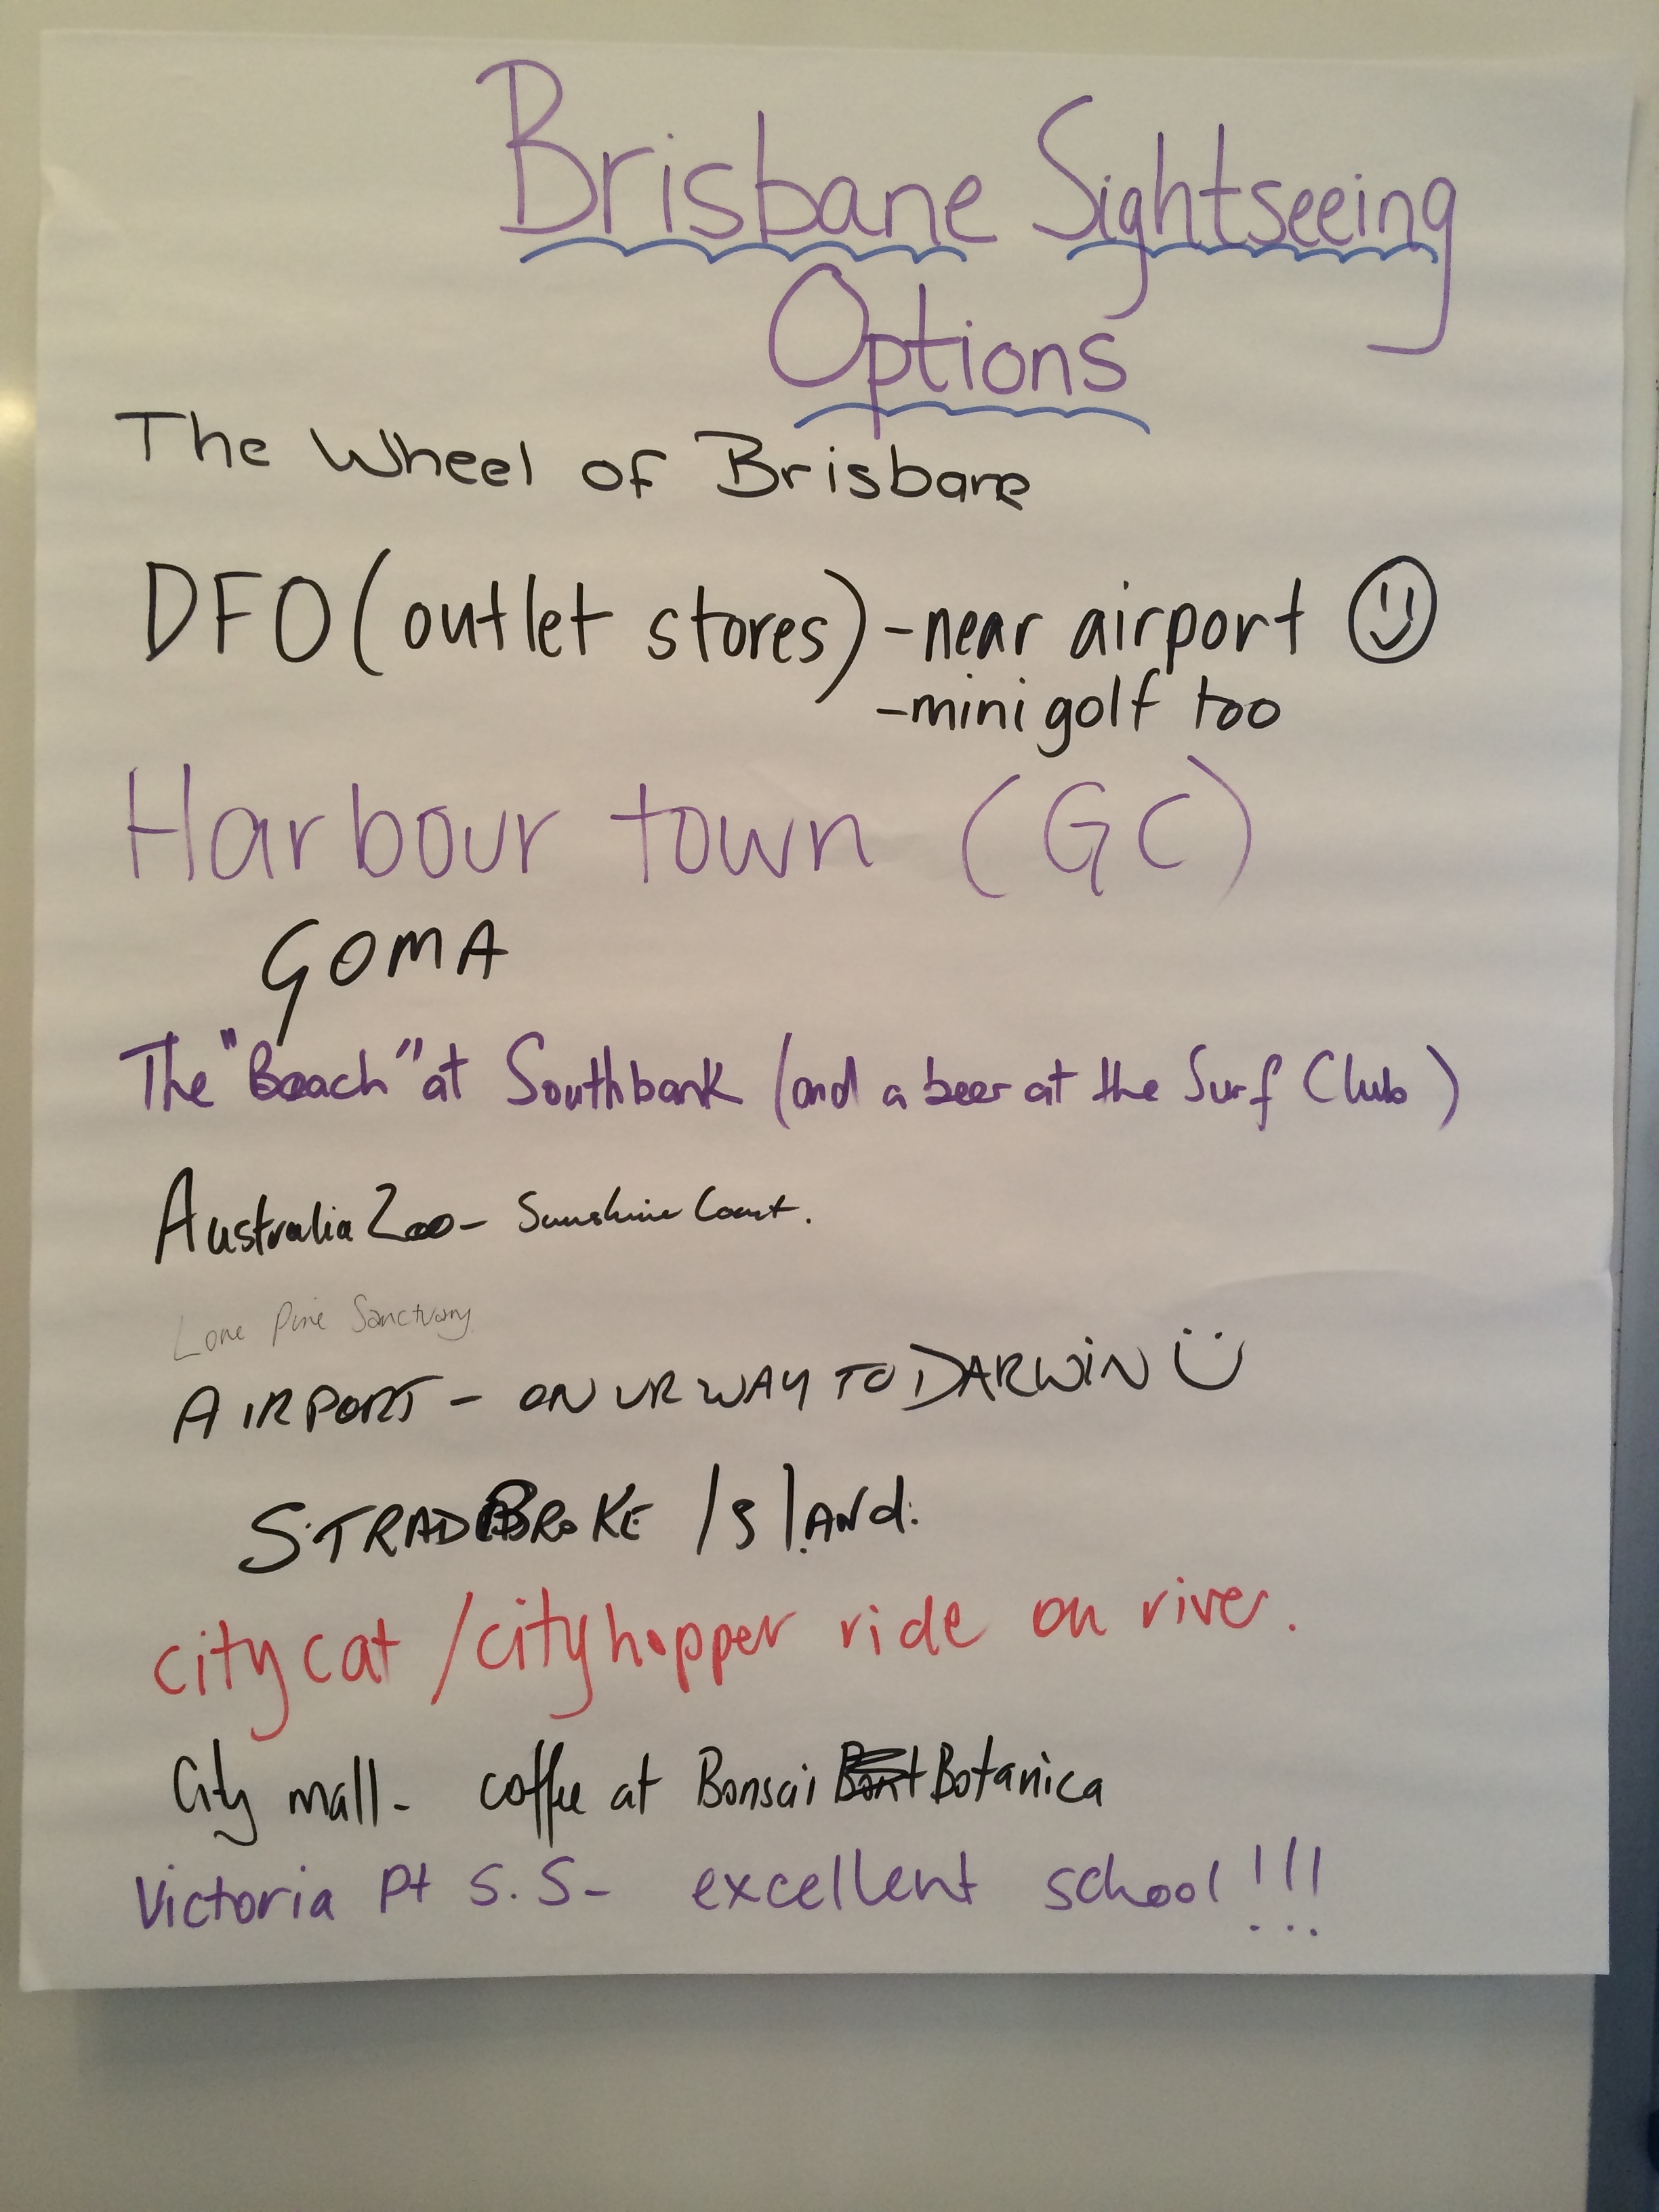 Brisbane Sightseeing
Options
The Wheel of Brisbane
DFO (outlet stores) - near airport
- mini golf too
Harbour town (GC)
GOMA
The "Beach" at Southbank (and a beer at the Surf Club)
Australia Zoo - Sunshine Coast.
Lone Pine Sanctuary
AIRPORT - ON UR WAY TO DARWiN
STRADBROKE IslANd.
city cat / city hopper ride on river.
City mall - coffee at Bonsai Botanica
Victoria Pt S.S - excellent school!!!